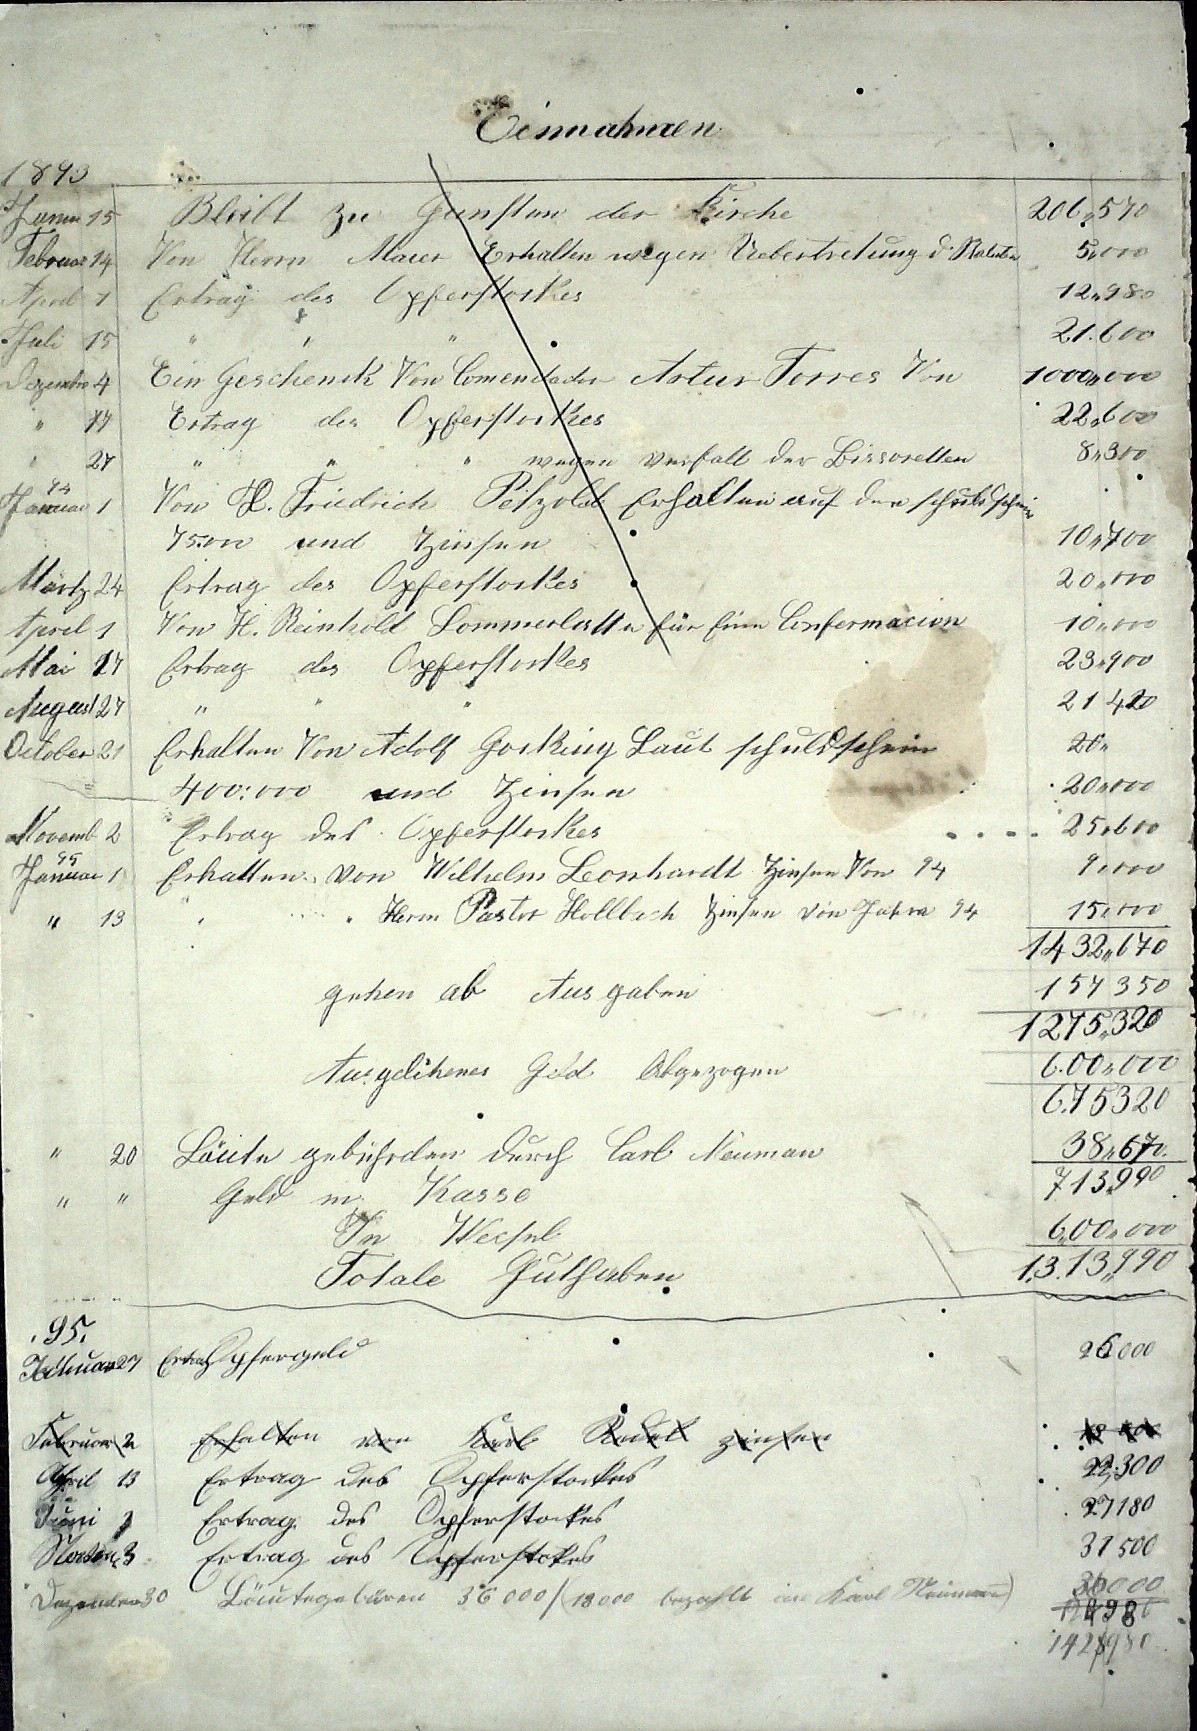 Einnahmen
1893
Januar 15 Bleibt zu Gunsten der Kirche 206,,570
Februar 14 Von Herrn Maier Erhalten wegen Uebertretung d. Statuten 5,,000
April 1 Ertrag des Opferstockes 12,,980
Juli 15 " " " 21.600
Dezember 4 Ein Geschenck Von Comendador Artur Torres Von 1000,,000
" 17 Ertrag des Opferstockes 22,,600
" 27 " " " wegen verfall der 8,,300
94
Januar 1 Von H. Friedrich Petzold Erhalten auf den schuldschein
75000 und Zinsen 10,,700
Märtz 24 Ertrag des Opferstockes 20,,000
April 1 Von H. Reinhold Sommerlatte für eine Confermacion 10,,000
Mai 17 Ertrag des Opferstockes 23,,900
August 27 " " " 21 420
October 21 Erhalten Von Adolf Laut schuldschein 20,,
400:000 und Zinsen 20,,000
Novemb 2 Ertrag des Opferstockes 25,,600
95
Januar 1 Erhalten von Wilhelm Leonhardt Zinsen Von 94 9,,000
" 13 " " Herrn Pastor Hollbach Zinsen von Jahre 94 15,,000
1432,,670
gehen ab Ausgaben 157 350
1275,,320
Ausgelihenes Geld Abgezogen 600,,000
675320
" 20 Läute gebührden durch Carl Neuman 38,,670
" " Geld in Kasse 713,,990
In Wecsel 600,,000
Totale Guthaben 1.313,,990
.95.
Februar 27 Ertrag Opfergeld 26000
Februar 2 Erhalten von Karl Zinsen
April 13 Ertrag des Opferstockes 22,300
Juni Ertrag des Opferstockes 27180
3 Ertrag des Opferstokes 31500
Dezember 30 Läutegebüren 36000/(18000 bezahlt an Karl Neuman) 36000
142980